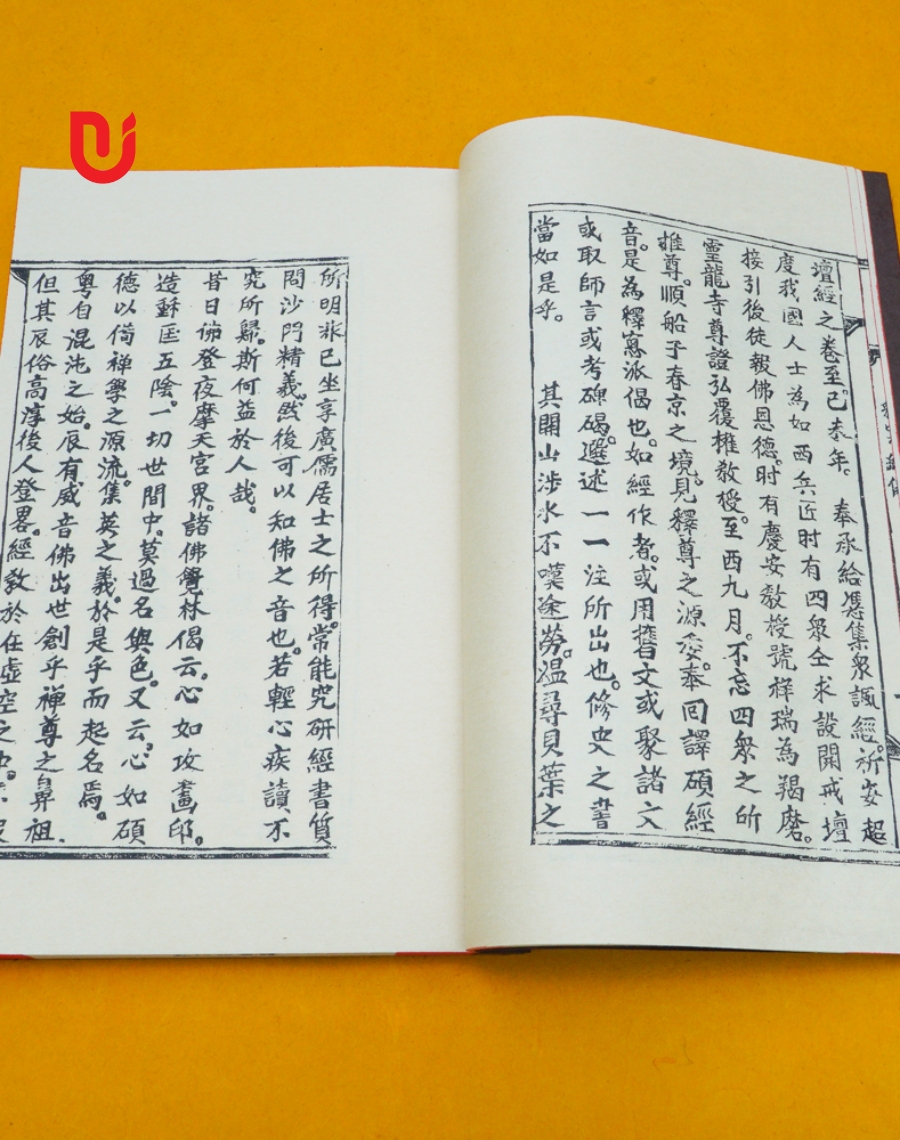 壇經之卷至。己夲年。奉承給憑集衆諷經。祈安超
度我國人士為如西兵近时有四衆仝求設開戒壇
接引後徒報佛恩德。时有慶安教授號祥瑞為羯磨。
靈龍寺尊證弘覆推教授。至西九月。不忘四衆之所
推尊。順船子春京之境。見釋尊之源委。奉囘譯碩經
音。是為釋窓派偈也。如經作者。或用舊文或聚諸文
或取師言或考碑碣。選述一一注所出也。修史之書
當如是乎。其開山涉水不嘆途勞。溫尋貝葉之
所明非己坐享廣儒居士之所得。常能究研經書質
問沙門精義。然後可以知佛之音也。若輕心疾讀不
究所歸。斯何益於人哉。
昔日佛登夜摩天宮界。諸佛覺林偈云。心如攻畫
造穌匡五陰。一切世間中。莫過名與色。又云。心如碩
德以偹禅學之源流。集英之義。於是乎而起名焉。
粵自混沌之始。辰有威音佛出世創乎禅尊之鼻祖.
但其辰俗高淳後人登畧。經教於在虛空之中。